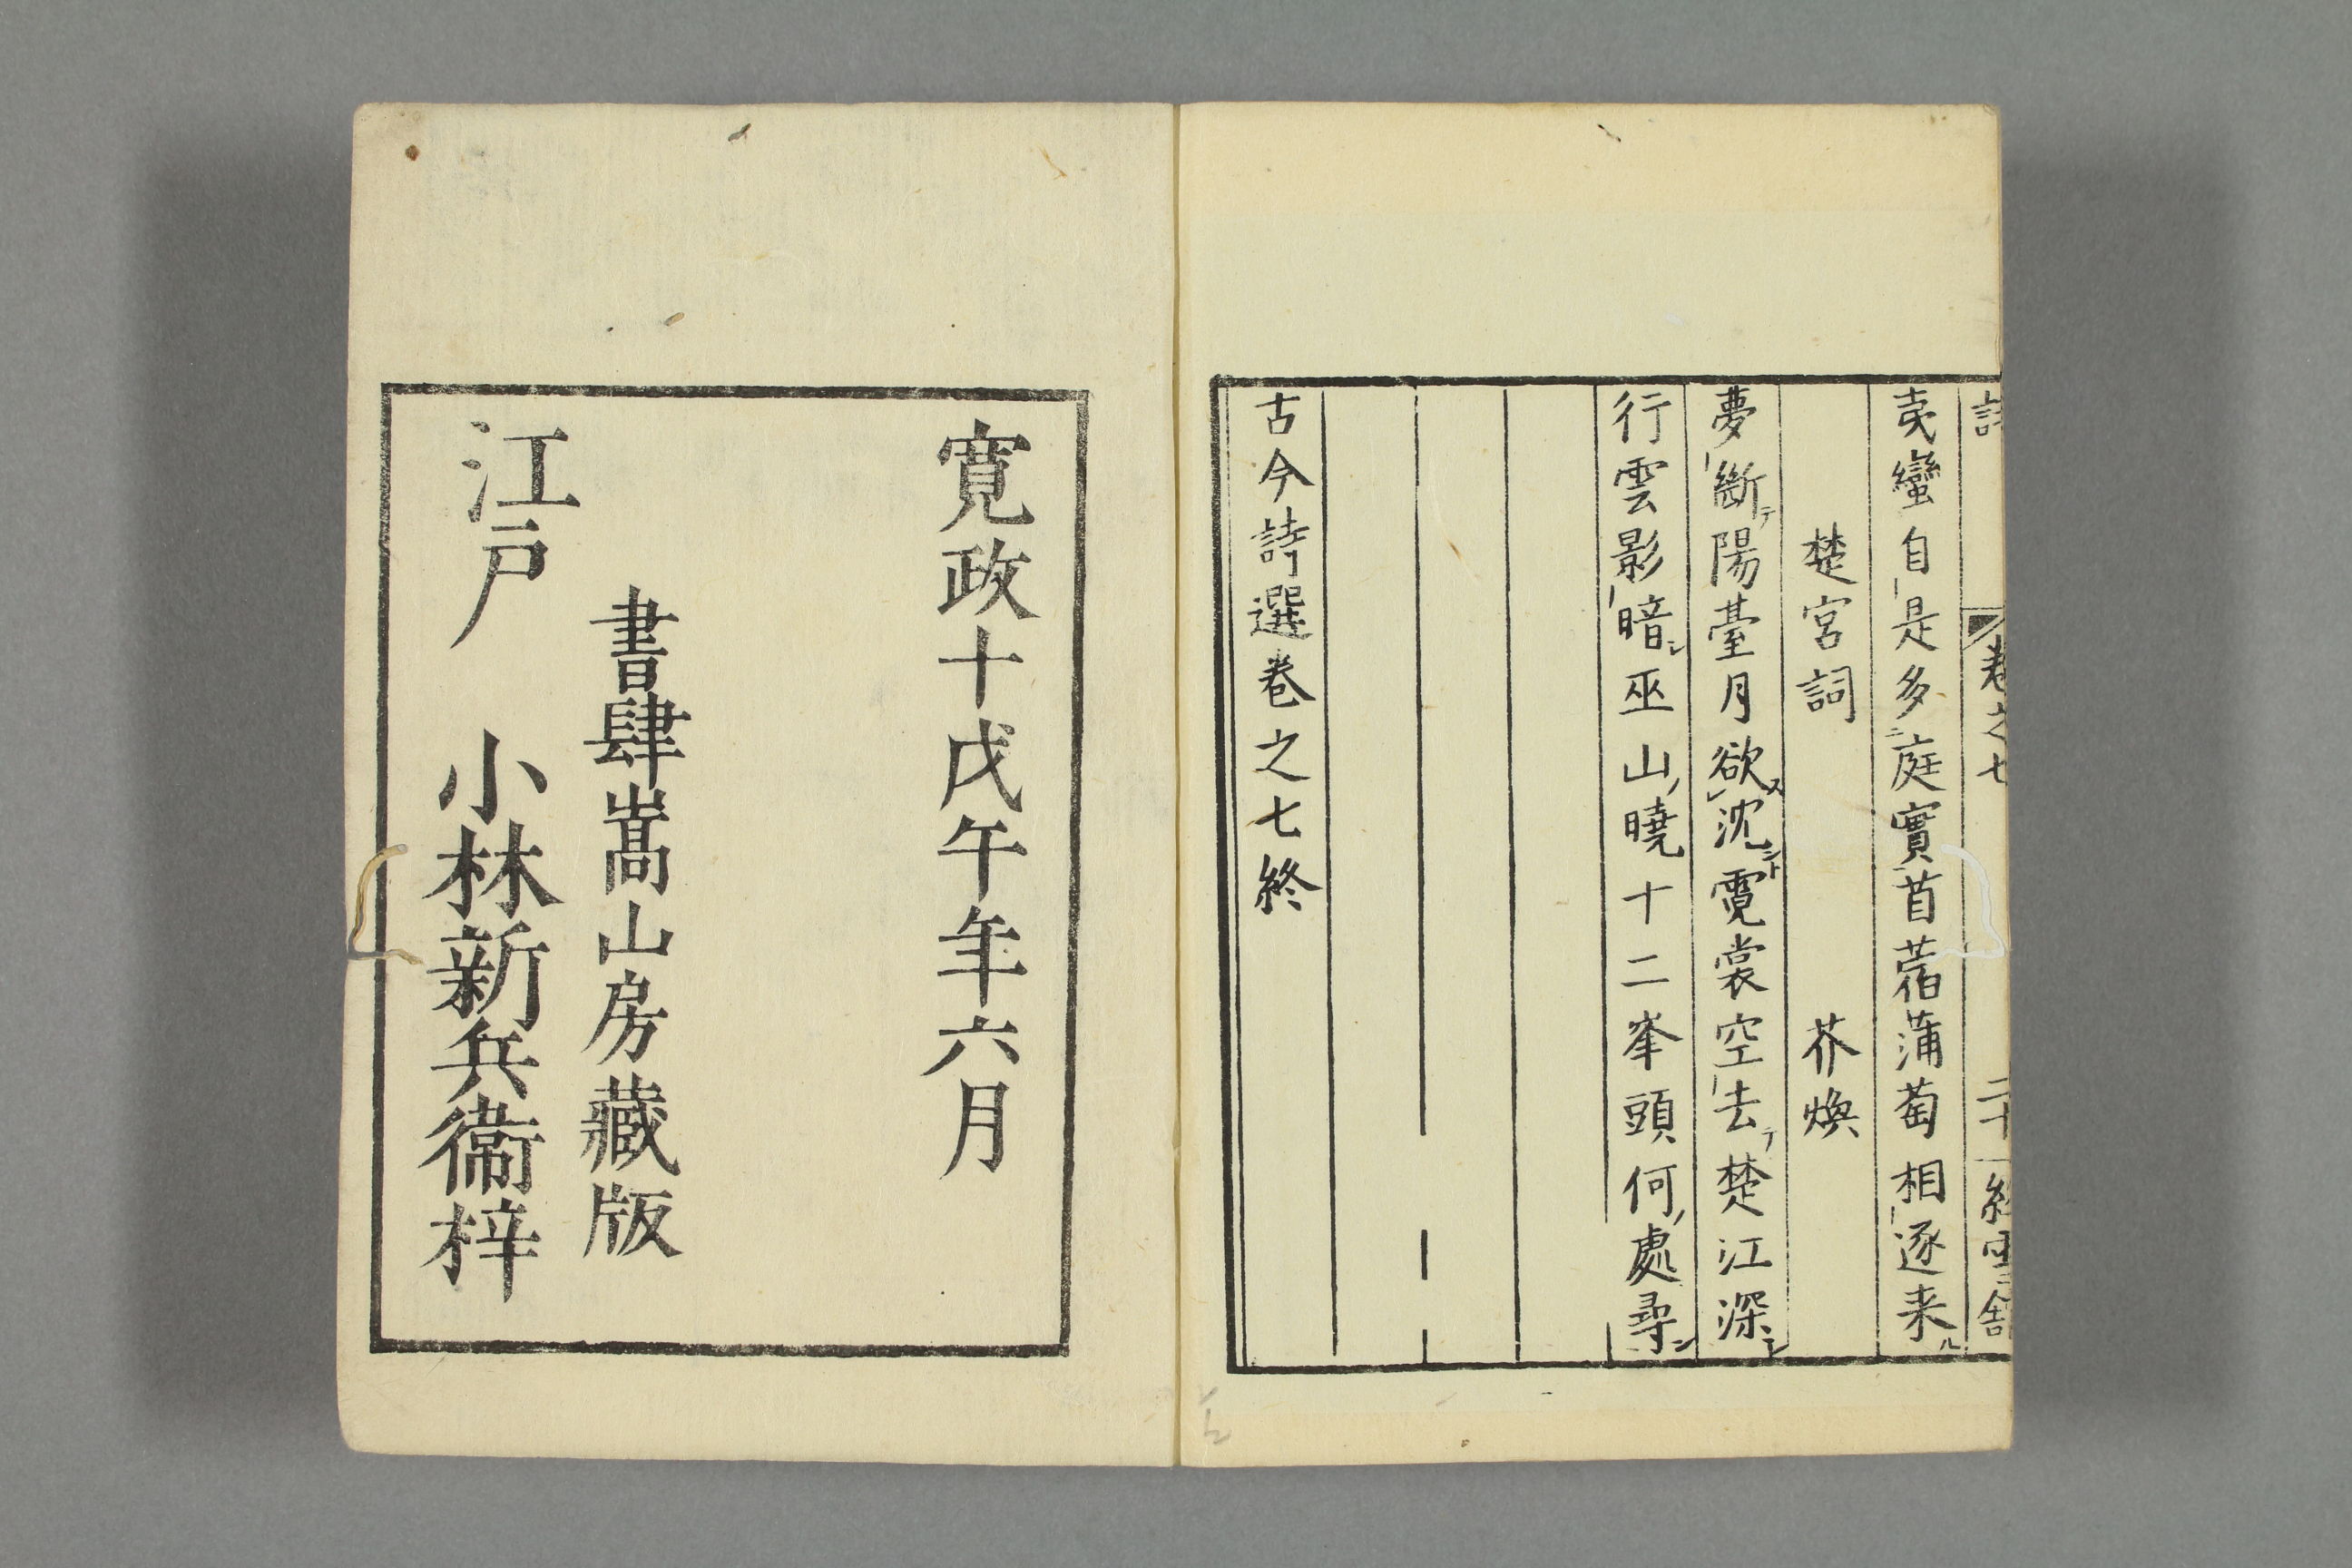 卷之七
夷蠻自是多庭實苜蓿蒲萄相逐来ル
楚宮詞　芥煥
夢斷テ陽臺月欲ス沈シト霓裳空去テ楚江深シ
行雲影暗シ巫山ノ曉十二峯頭何ノ處尋ン
古今詩選卷之七終
寛政十戊午年六月
書肆嵩山房藏版
江戸　小林新兵衞梓